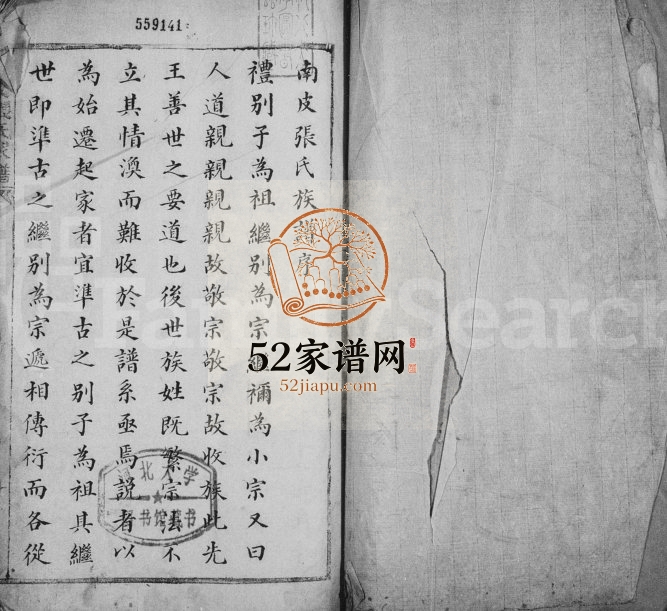 559141
南皮張氏族序
禮別子為祖繼別為宗禰為小宗又曰
人道親親親親故敬宗敬宗故收族此先
王善世之要道也後世族姓既繁宗法不
立其情渙而難收於是譜系亟焉説者以
為始遷起家者宜準古之別子為祖具繼
世即準古之繼別為宗遞相傳衍而各從
52家谱网
52jiapu.com
Search
北 学
书馆 书